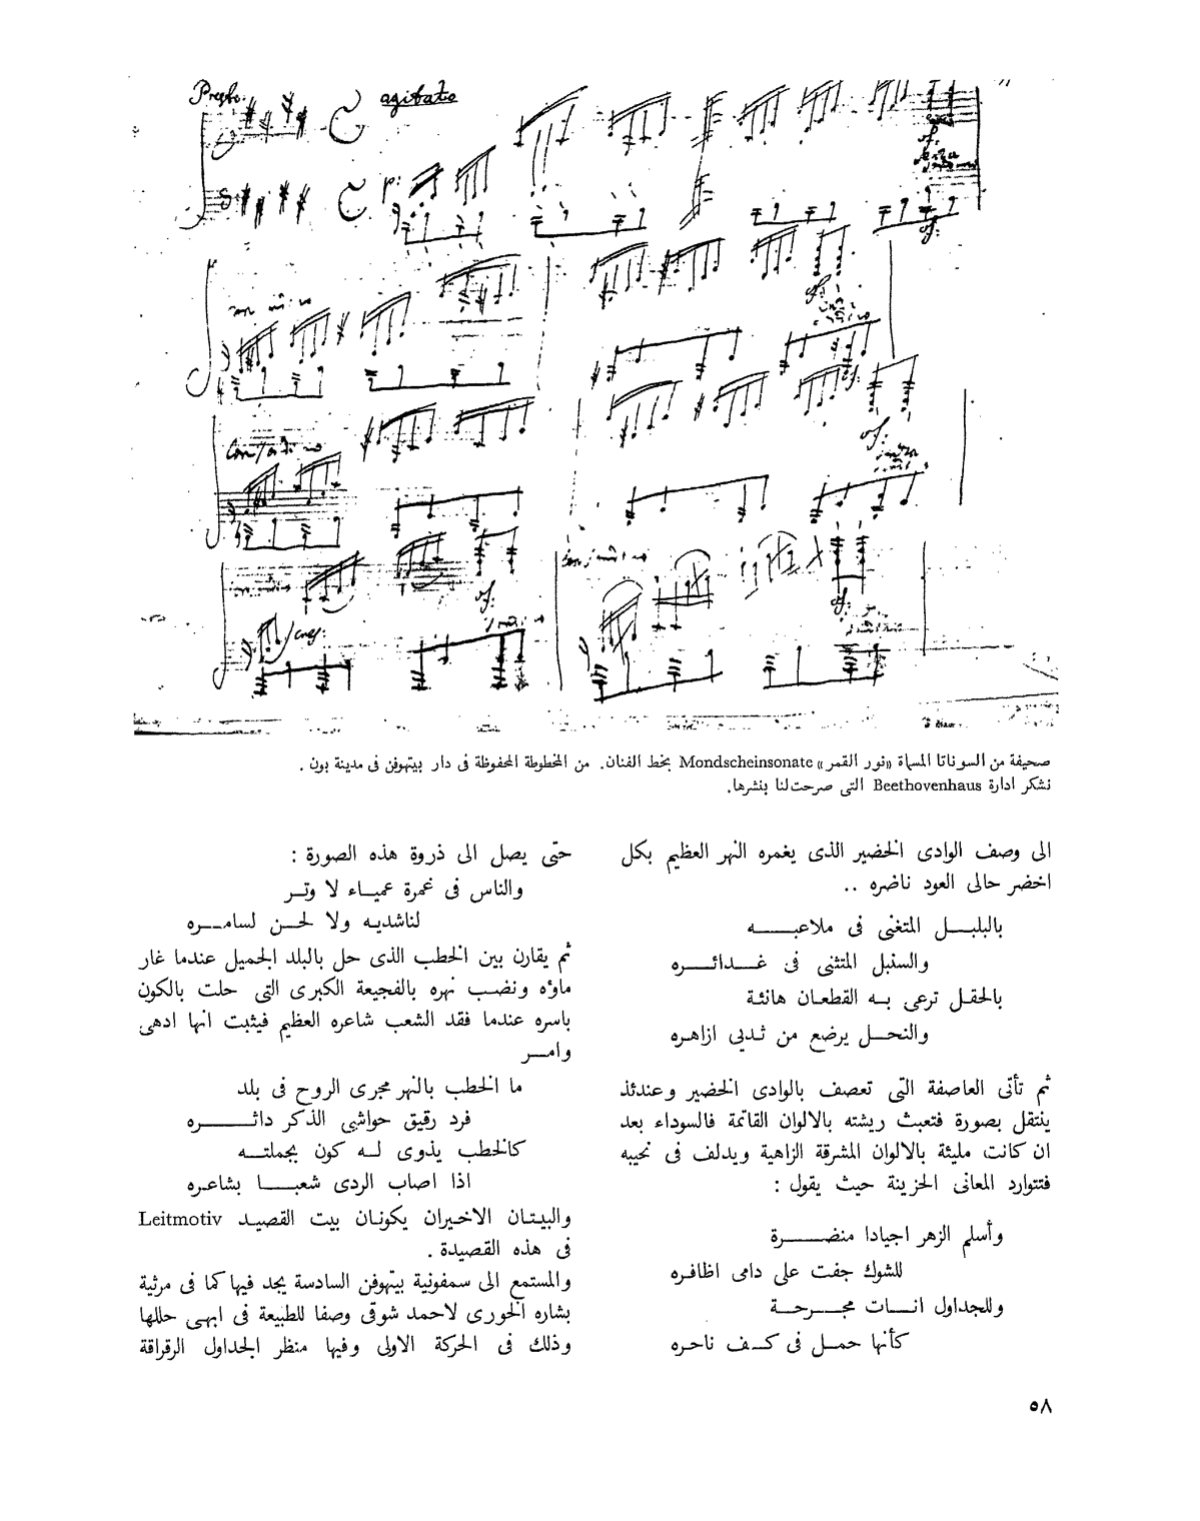 Presto agitato
صحيفة من السوناتا المسماة «نور القمر» Mondscheinsonate بخط الفنان. من المخطوطة المحفوظة فى دار بيتهوفن فى مدينة بون .
نشكر ادارة Beethovenhaus التى صرحت لنا بنشرها.
الى وصف الوادى الخضير الذى يغمره النهر العظيم بكل
اخضر حالى العود ناضره ..
بالبلبــل المتغنى فى ملاعبــــه
والسنبل المتثنى فى غـــدائــــره
بالحقـل ترعى بـه القطعـان هانئـة
والنحـــل يرضع من ثـديى ازاهـره
ثم تأتى العاصفة التى تعصف بالوادى الخضير وعندئذ
ينتقل بصورة فتعبث ريشته بالالوان القاتمة فالسوداء بعد
ان كانت مليئة بالالوان المشرقة الزاهية ويدلف فى نحيبه
فتتوارد المعانى الحزينة حيث يقول :
وأسلم الزهر اجيادا منضــــرة
للشوك جفت على دامى اظافـره
وللجداول انــات مجـــرحــة
كأنها حمــل فى كــف ناحـره
حتى يصل الى ذروة هذه الصورة :
والناس فى غمرة عميــاء لا وتــر
لناشديـه ولا لحــن لسامـــره
ثم يقارن بين الخطب الذى حل بالبلد الجميل عندما غار
ماؤه ونضـب نهره بالفجيعة الكبرى التى حلت بالكون
باسره عندما فقد الشعب شاعره العظيم فيثبت انها ادهى
وامــر
ما الخطب بالنهر مجرى الروح فى بلد
فرد رقيق حواشى الذكر داثـــــره
كالخطب يذوى لــه كون بجملتــه
اذا اصاب الردى شعبــــا بشاعـره
والبيتـان الاخـيران يكونـان بيت القصيـد Leitmotiv
فى هذه القصيدة .
والمستمع الى سمفونية بيتهوفن السادسة يجد فيها كما فى مرثية
بشاره الخورى لاحمد شوقى وصفا للطبيعة فى ابهـى حللها
وذلك فى الحركة الاولى وفيها منظر الجداول الرقراقة
٥٨